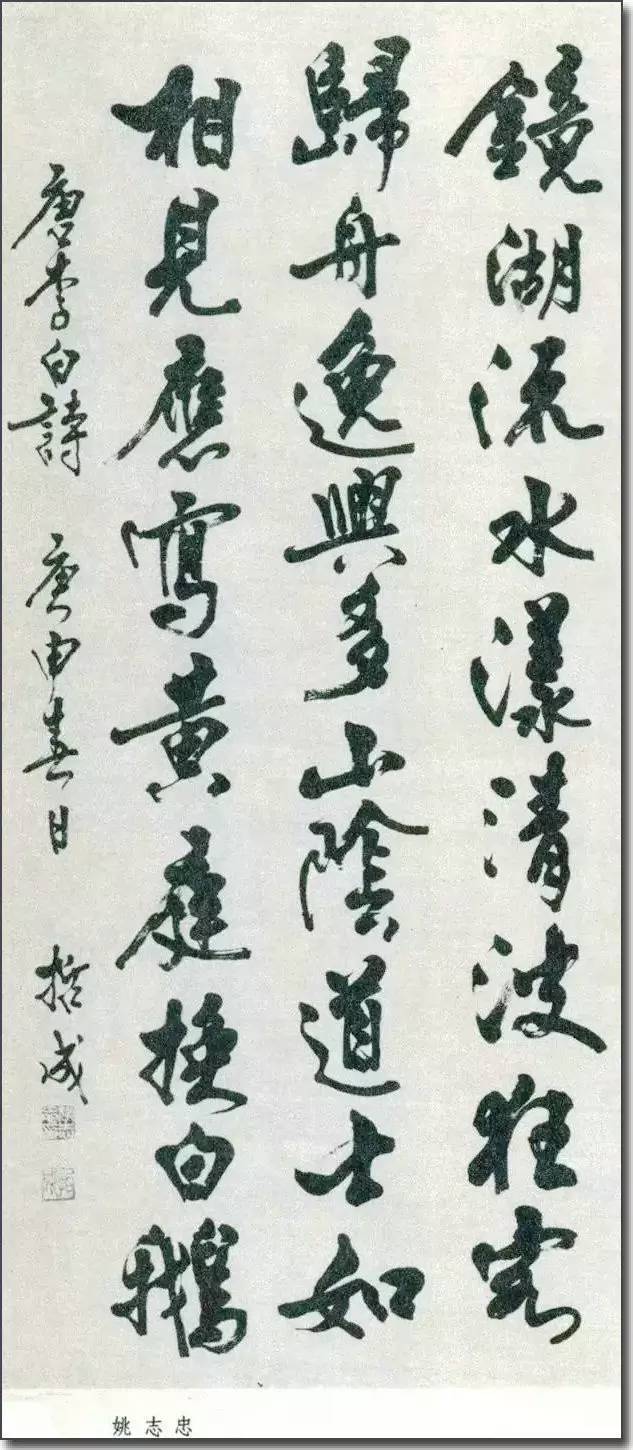 鏡湖流水漾清波狂客
歸舟逸興多山陰道士如
相見應寫黃庭換白鵝
唐李白詩 庚申春日 哲成
姚志忠